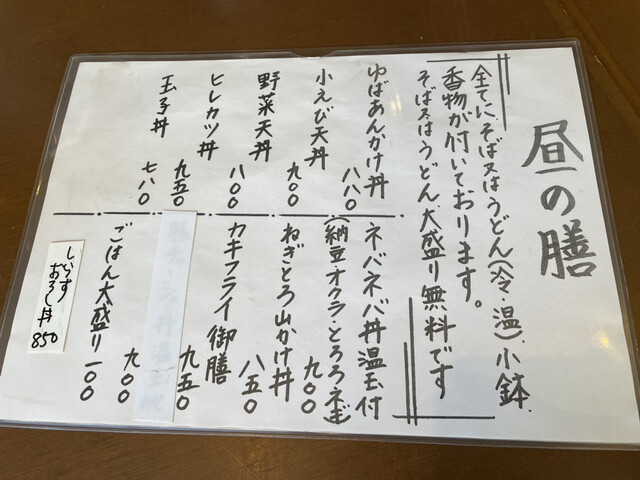 昼の膳
全てに、そば又はうどん(冷・温)、小鉢、
香物が付いております。
そば又はうどん、大盛り無料です
ゆばあんかけ丼
八八〇
小えび天丼
九〇〇
野菜天丼
八〇〇
ヒレカツ丼
九五〇
玉子丼
七八〇
ネバネバ丼温玉付
(納豆・オクラ・とろろ・ネギ)
九〇〇
ねぎとろ山かけ丼
八五〇
カキフライ御膳
九五〇
九〇〇
ごはん大盛り一〇〇
しらす
おろし丼
850